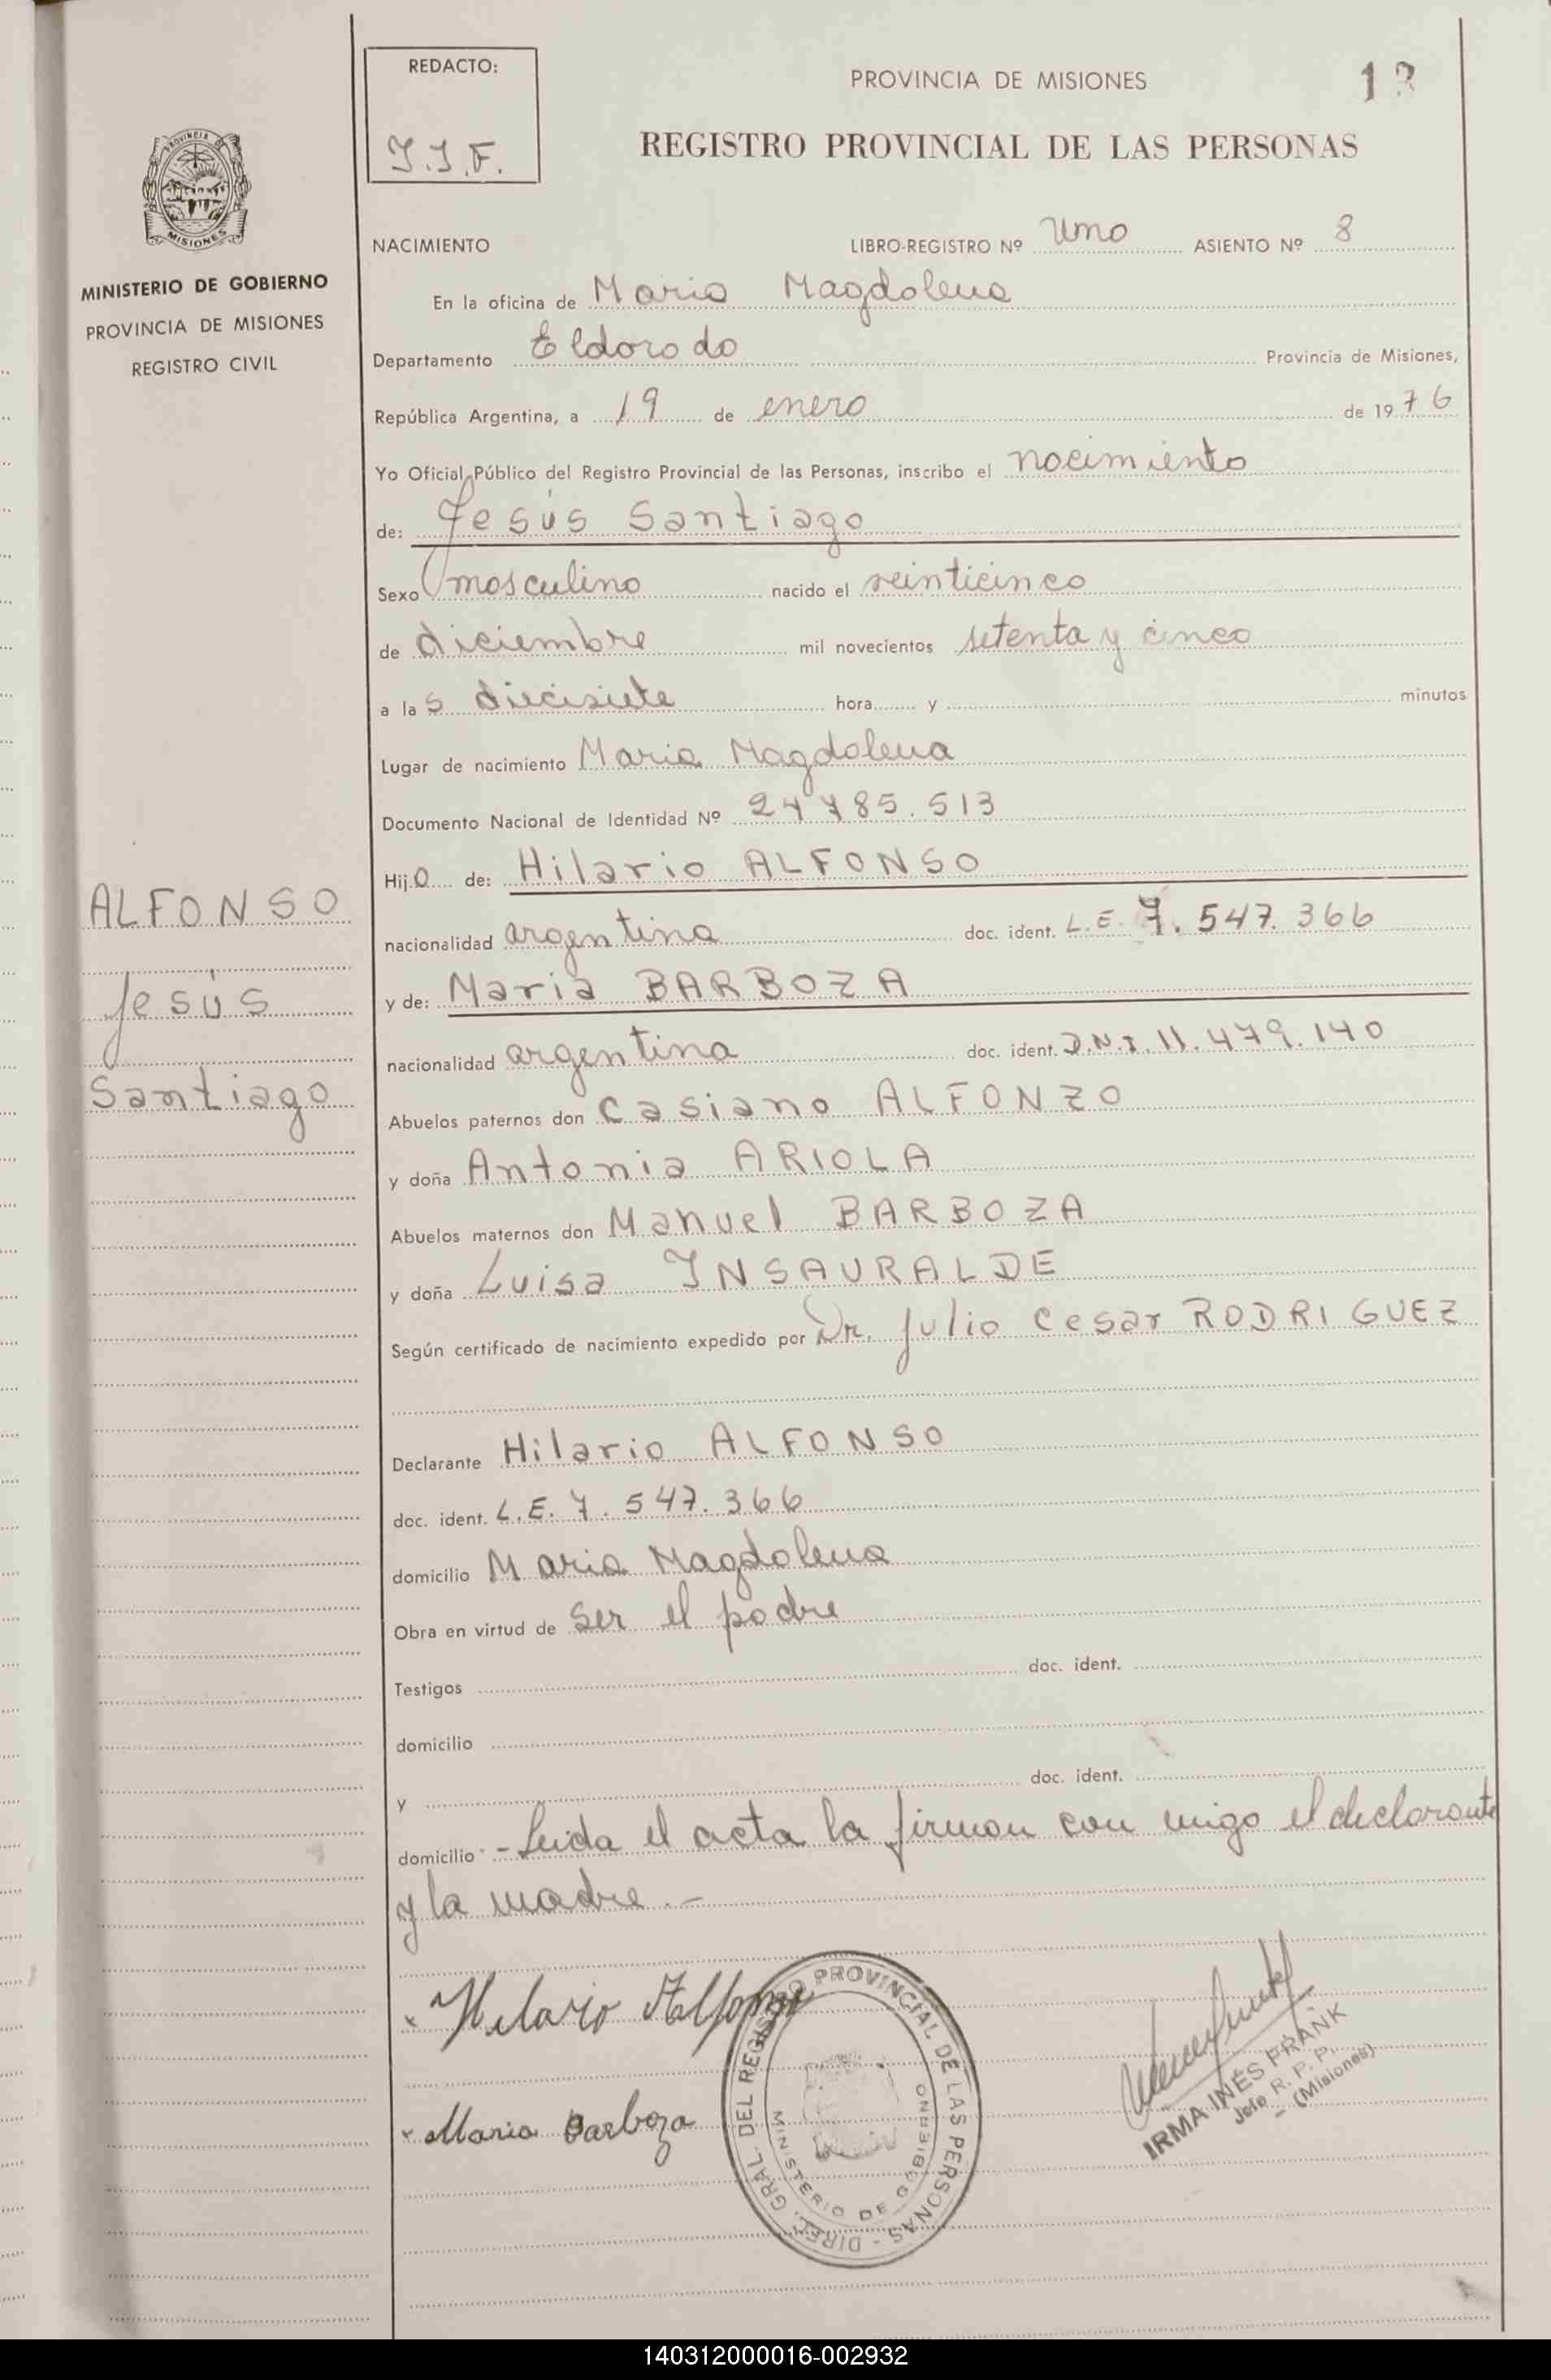 REDACTO:
J.J.F.
PROVINCIA DE MISIONES
13
REGISTRO PROVINCIAL DE LAS PERSONAS
PROVINCIA
MISIONES
MINISTERIO DE GOBIERNO
PROVINCIA DE MISIONES
REGISTRO CIVIL
NACIMIENTO LIBRO-REGISTRO Nº Uno ASIENTO Nº 8
En la oficina de Maria Magdalena
Departamento Eldorado Provincia de Misiones,
República Argentina, a 19 de enero de 1976
Yo Oficial Público del Registro Provincial de las Personas, inscribo el nacimiento
de: Jesús Santiago
Sexo masculino nacido el veinticinco
de diciembre mil novecientos setenta y cinco
a las diecisiete hora y minutos
Lugar de nacimiento Maria Magdalena
Documento Nacional de Identidad Nº 24785.513
Hijo de: Hilario ALFONSO
nacionalidad argentina doc. ident. L.E. 7.547.366
y de: Maria BARBOZA
nacionalidad argentina doc. ident. D.N.I. 11.479.140
Abuelos paternos don Casiano ALFONZO
y doña Antonia ARIOLA
Abuelos maternos don Manuel BARBOZA
y doña Luisa INSAURALDE
Según certificado de nacimiento expedido por Dr. Julio Cesar RODRIGUEZ
Declarante Hilario ALFONSO
doc. ident. L.E. 7.547.366
domicilio Maria Magdalena
Obra en virtud de ser el padre
Testigos doc. ident.
domicilio
y doc. ident.
domicilio - Leida el acta la firman con migo el declarante
y la madre.-
ALFONSO
Jesús
Santiago
Hilario Alfonso
Maria Barboza
DIREC. GRAL. DEL REGISTRO PROVINCIAL DE LAS PERSONAS -
MINISTERIO DE GOBIERNO
IRMA INÉS FRANK
Jefe R. P. P.
- (Misiones)
140312000016-002932